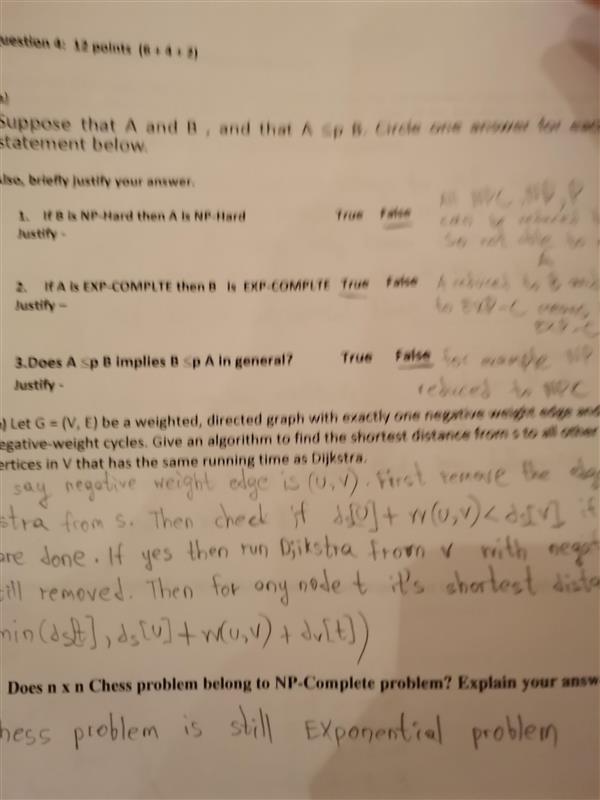 uestion 4: 12 points (6 + 4 + 2)
a)
Suppose that A and B , and that A ≤p B. Circle one answer for
statement below.
Also, briefly justify your answer.
1. If B is NP-Hard then A is NP-Hard True False All NPC, NP, P
Justify - can be reduced
So not able to
A
2. If A is EXP-COMPLTE then B is EXP-COMPLTE True False A reduced to B
Justify – to EXP-C
EXP-C
3.Does A ≤p B implies B ≤p A in general? True False for example NP
Justify - reduced to NPC
) Let G = (V, E) be a weighted, directed graph with exactly one negative weight edge and
egative-weight cycles. Give an algorithm to find the shortest distance from s to all other
ertices in V that has the same running time as Dijkstra.
say negative weight edge is (u,v). First remove the
stra from s. Then check if ds[u] + w(u,v) < ds[v] if
are done. If yes then run Djikstra from v with negat
till removed. Then for any node t it's shortest dista
min(ds[t], ds[u] + w(u,v) + dv[t])
Does n x n Chess problem belong to NP-Complete problem? Explain your answ
hess problem is still Exponential problem